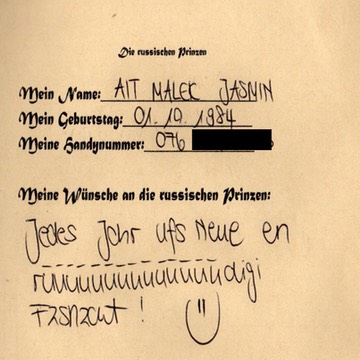 Die russischen Prinzen
Mein Name: AIT MALEK JASMIN
Mein Geburtstag: 01. 10. 1984
Meine Handynummer: 076
Meine Wünsche an die russischen Prinzen:
Jedes Johr ufs Neue en
ruuuuuuuuuuuuuudigi
!